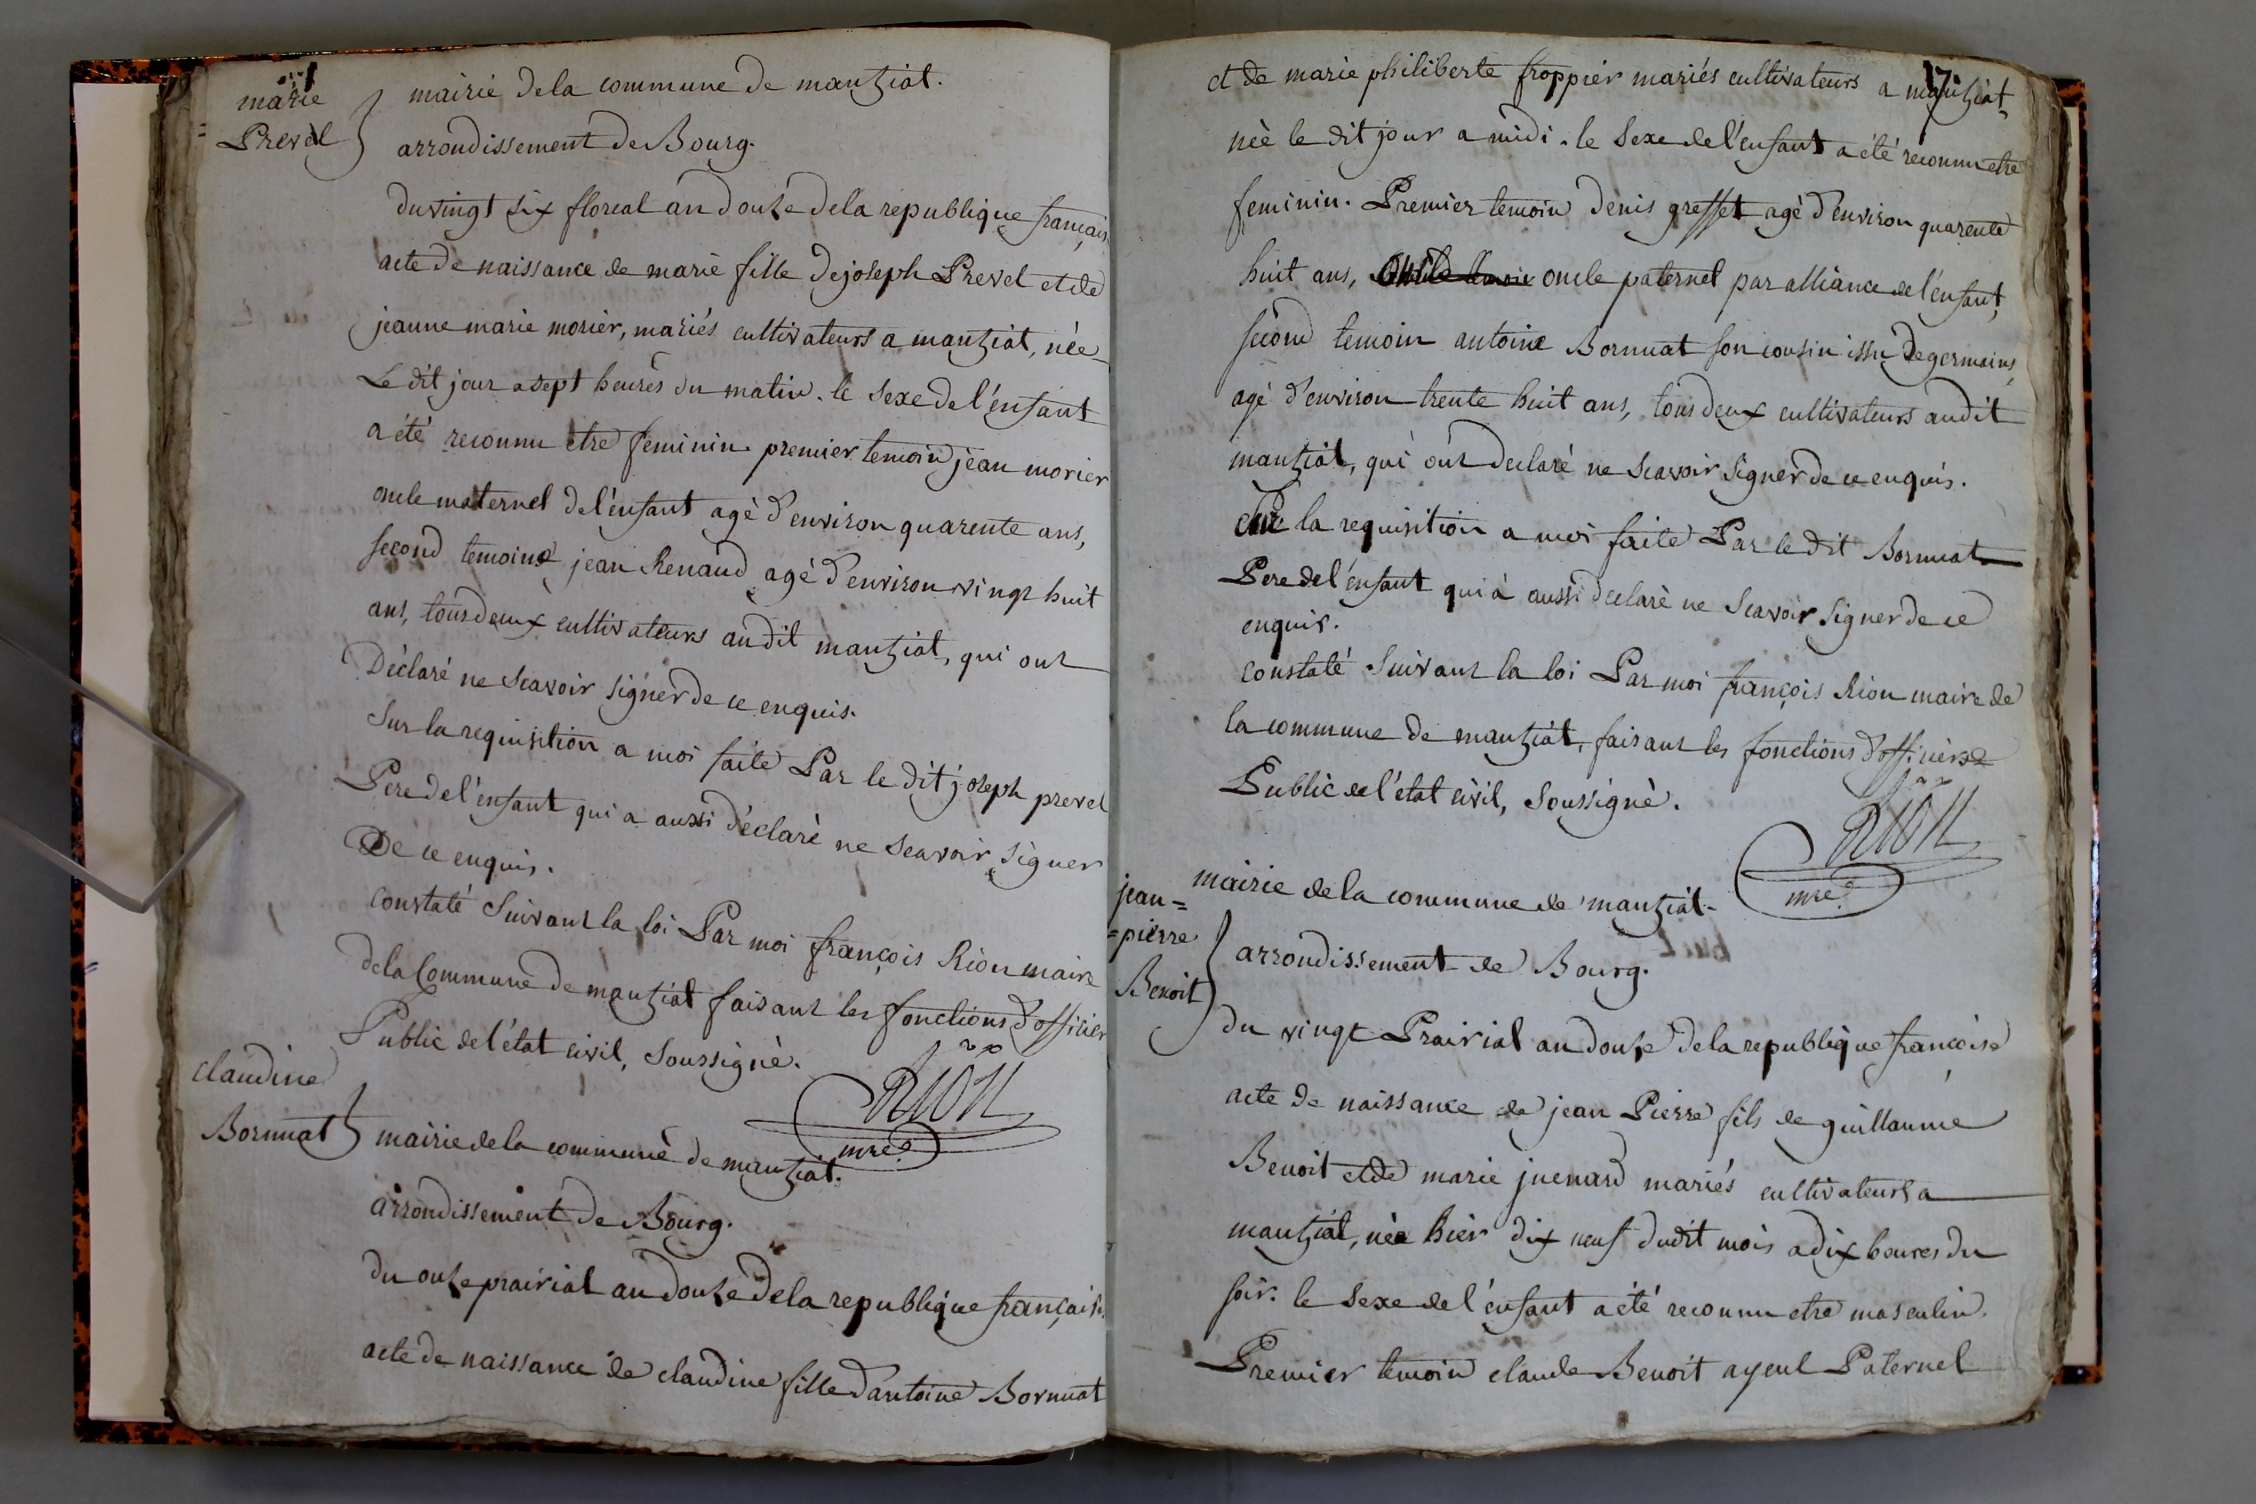 marie
Prevel
mairie de la commune de mantziat.
arrondissement de Bourg.
du vingt six floreal an douze de la republique français
acte de naissance de marie fille de joseph Prevel et de
jeanne marie morier, mariés cultivateurs a mantziat, née
Le dit jour a sept heures du matin. le sexe de l'enfant
a été reconnu etre feminin. premier temoin jean morier
oncle maternel de l'enfant agé d'environ quarente ans,
second temoine jean Renaud agé d'environ vingt huit
ans, tous deux cultivateurs au dit mantziat, qui ont
Déclaré ne scavoir signer de ce enquis.
Sur la requisition a moi faite Par le dit joseph prevel
Pere de l'enfant qui a aussi déclaré ne scavoir signer
De ce enquis.
constaté suivant la loi Par moi françois Rion maire
de la Commune de mantziat faisant les fonctions d'officier
Public de l'état civil, soussigné.
RION
mre
claudine
Bornuat
mairie de la commune de mantziat.
arrondissement de Bourg.
du onze prairial an douze de la republique français.
acte de naissance de claudine fille d'antoine Bornuat
17.
et de marie philiberte froppier mariés cultivateurs a mantziat,
née le dit jour a midi. le sexe de l'enfant a été reconnu etre
feminin. Premier temoin denis greffet agé d'environ quarente
huit ans, oncle paternel par alliance de l'enfant,
second temoin antoine Bornuat son cousin issu de germains,
agé d'environ trente huit ans, tous deux cultivateurs au dit
mantziat, qui ont declaré ne scavoir signer de ce enquis.
sur la requisition a moi faite Par le dit Bornuat
Pere de l'enfant qui a aussi declaré ne scavoir signer de ce
enquis.
constaté suivant la loi Par moi françois Rion maire de
la commune de mantziat, faisant les fonctions d'officier
Public de l'état civil, soussigné.
RION
mre
jean=
=pierre
Benoit
mairie de la commune de mantziat.
arrondissement de Bourg.
du vingt Prairial an douze de la republique françoise
acte de naissance de jean Pierre fils de guillaume
Benoit et de marie juenard mariés cultivateurs a
mantziat, née hier dix neuf dudit mois a dix heures du
soir. le sexe de l'enfant a été reconnu etre masculin.
Premier temoin claude Benoit ayeul Paternel